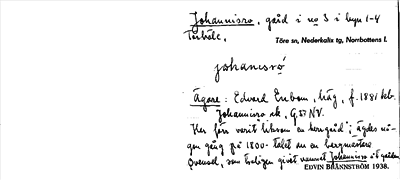 Johannisro, gård i no 3 i byn 1-4
Törböle,
Töre sn, Nederkalix tg, Norrbottens l.
johanisró
Ägare: Edvard Enbom, häg, f. 1881 här.
Johannisro ek, G.
Här förr varit liksom en herrgård; ägdes nå-
gon gång på 1800-talet av en bergmästare
Quensel, som troligen givit namnet Johannisro åt gården
EDVIN BRÄNNSTRÖM 1938.